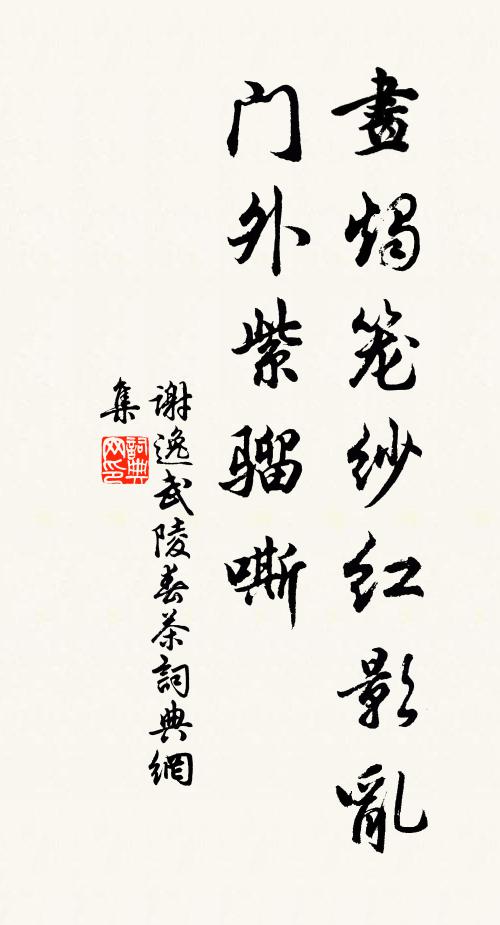 畫燭笼纱红影亂
门外紫骝嘶
谢逸武陵春茶詞典網
集
詞典网印